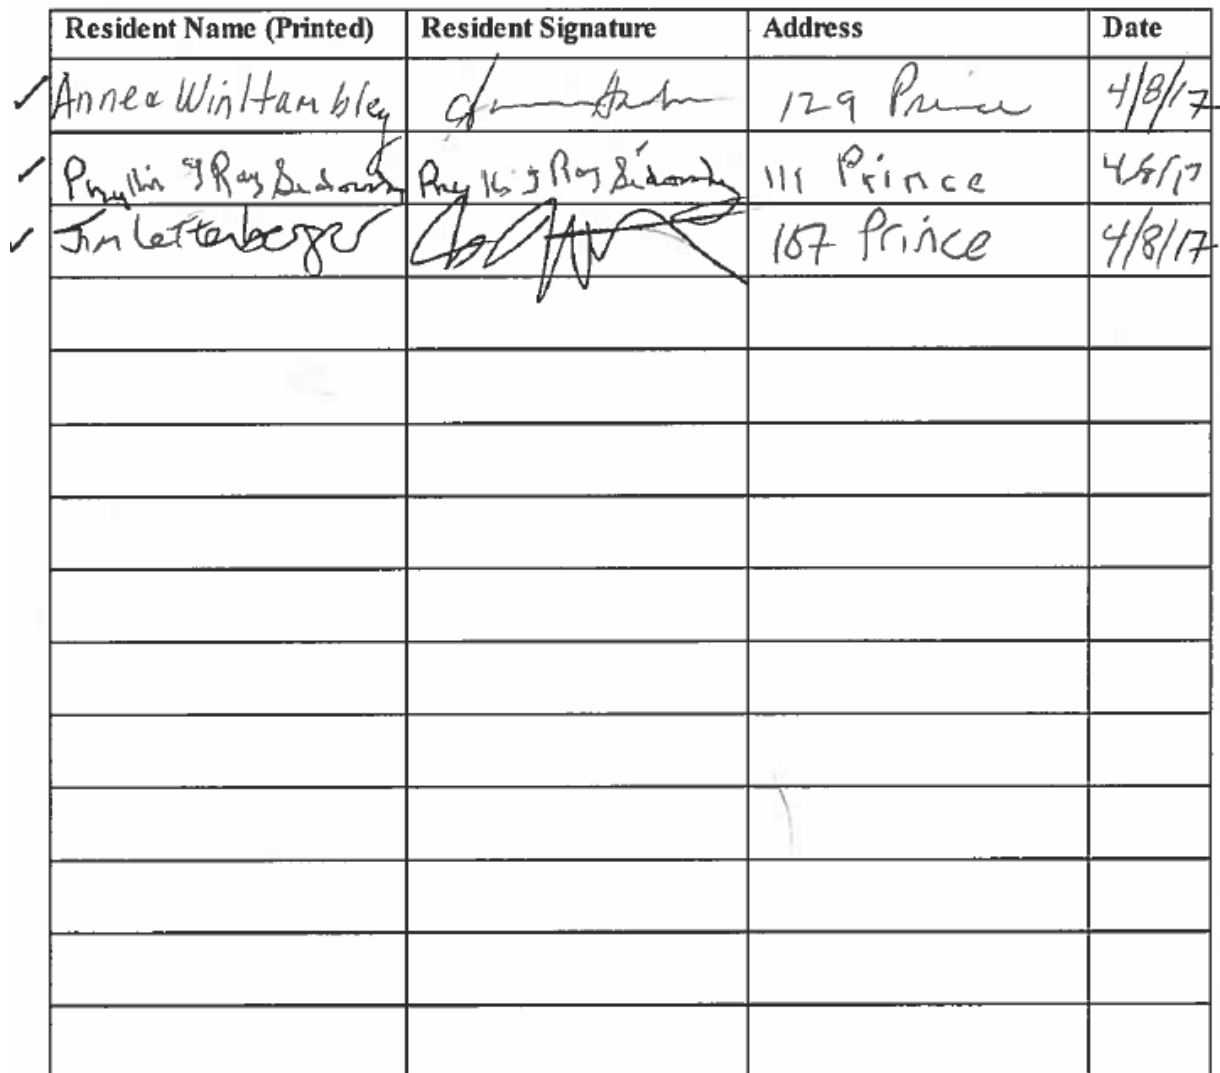 Resident Name (Printed) Resident Signature Address Date
Anne & Win Hambley 129 Prince 4/8/17
Phyllis & Ray 111 Prince 4/8/17
Jim Lettenberger 107 Prince 4/8/17